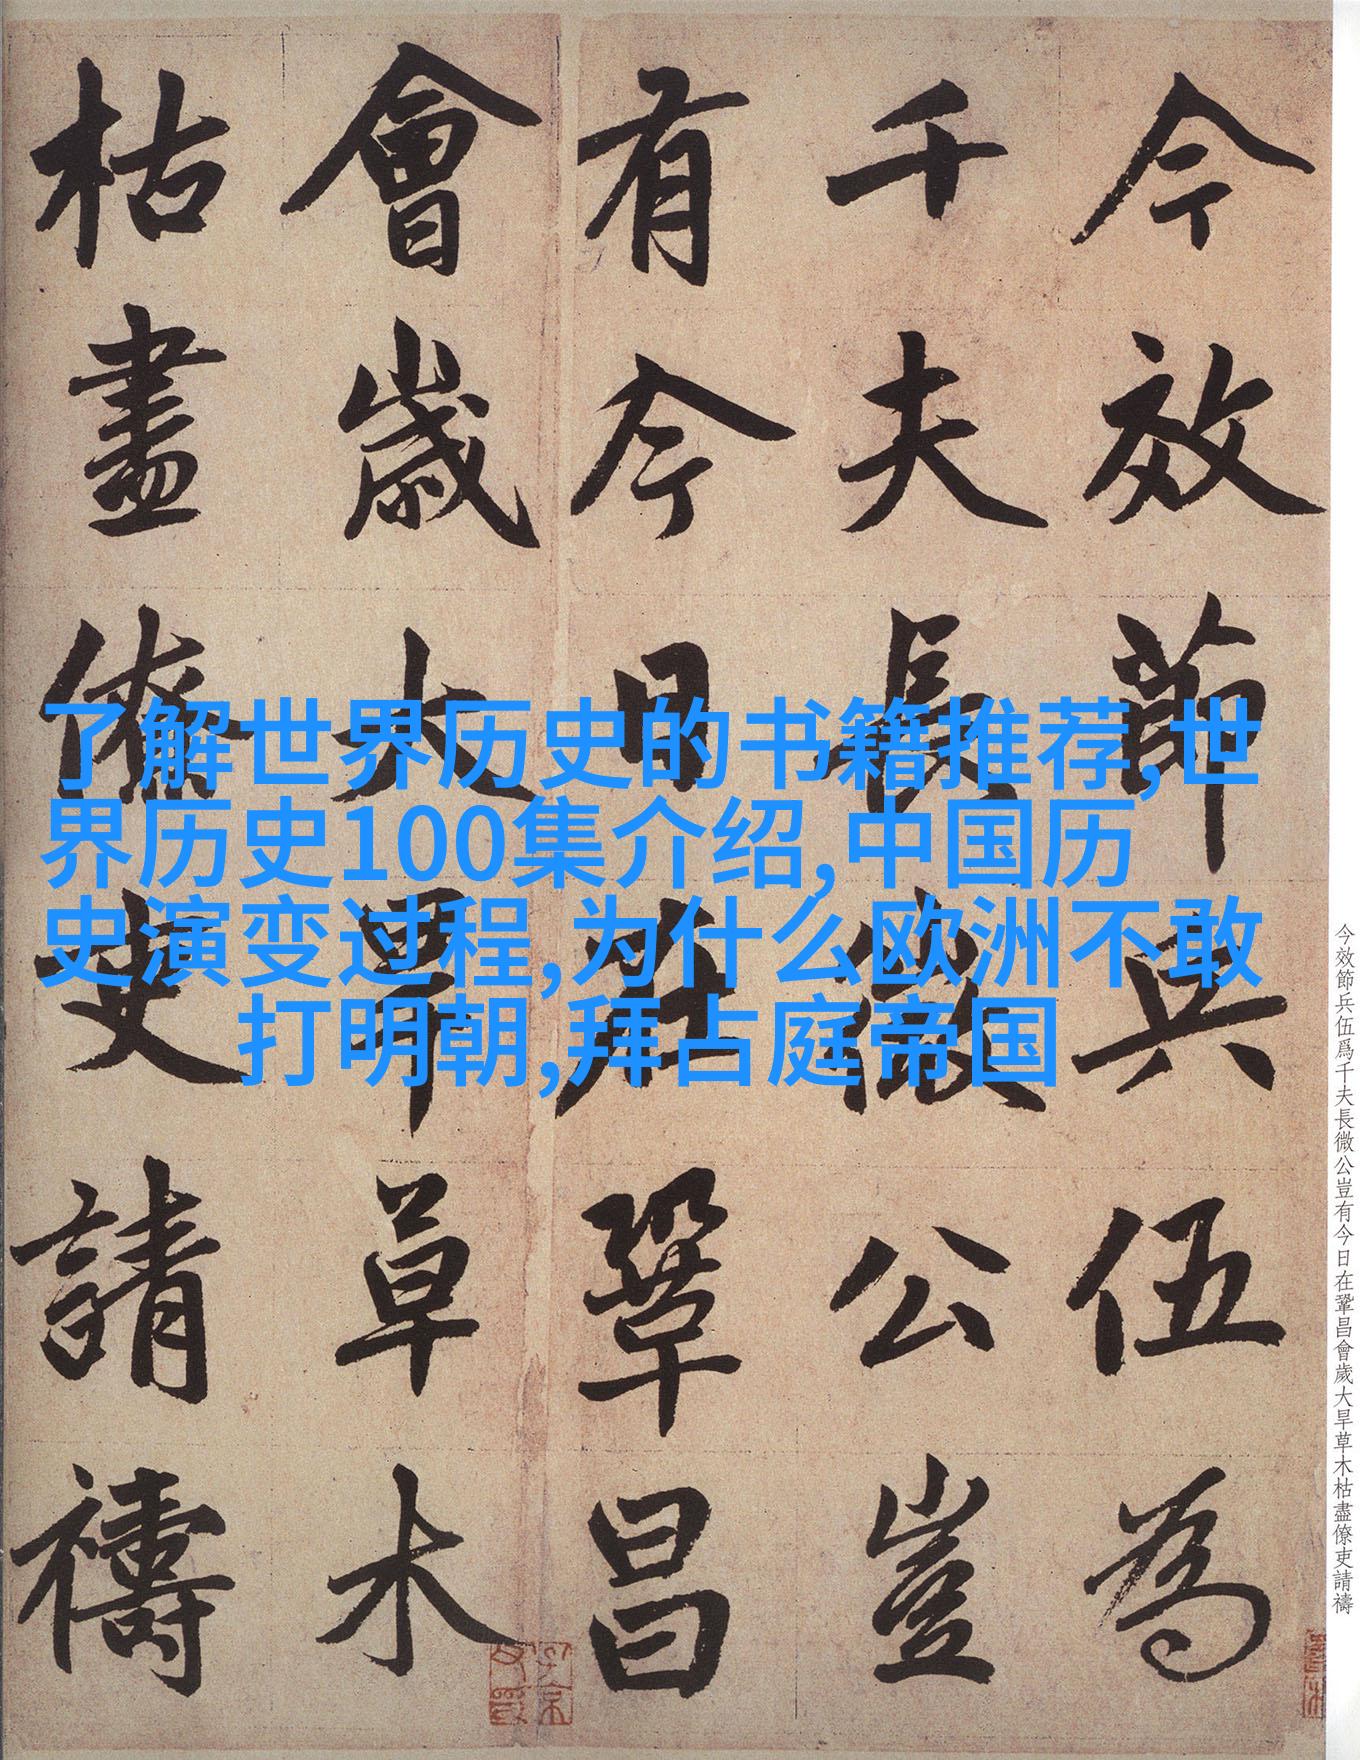 今效節兵伍為
千夫長微公豈
有今日在鞏昌
會歲大旱草木
枯盡僚吏請禱
了解世界历史的书籍推荐,世
界历史100集介绍,中国历
史演变过程,为什么欧洲不敢
打明朝,拜占庭帝国
今效節兵伍爲千夫長微公豈有今日在鞏昌會歲大旱草木枯盡僚吏請禱